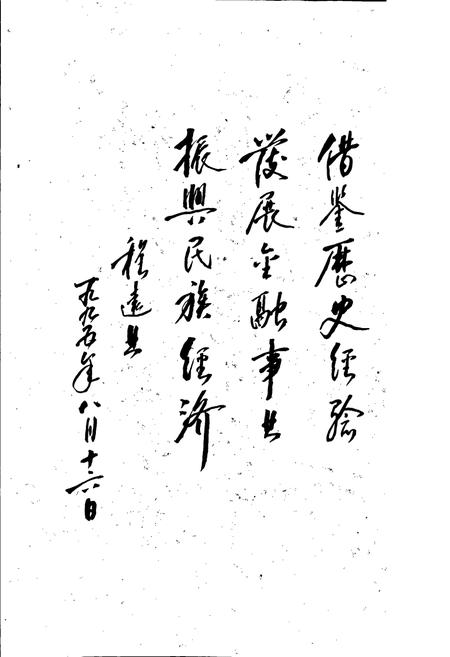 借鉴歷史经验
發展金融事业
振興民族经济
程远业
一九九五年八月十六日